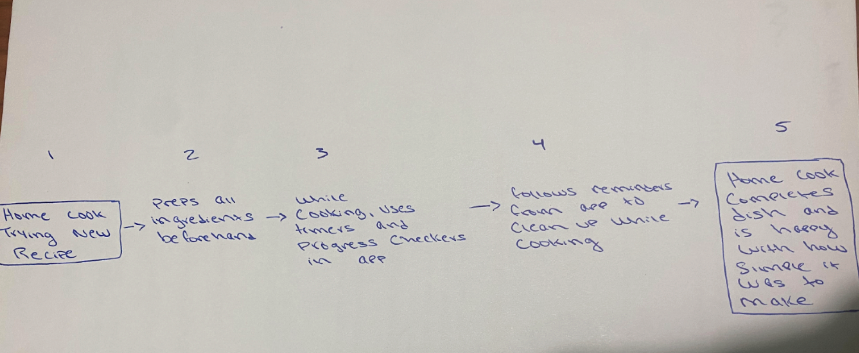 1
Home Cook
Trying New
Recipe
2
Preps all
ingredients
beforehand
3
while
Cooking, uses
timers and
Progress Checkers
in app
4
follows reminders
from app to
Clean up while
Cooking
5
Home Cook
Completes
dish and
is happy
with how
Simple it
was to
make